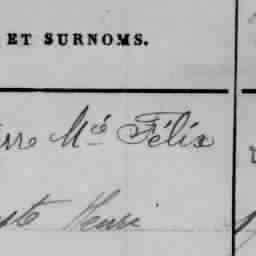 ET SURNOMS.
rre Mié Félix
ste Henri